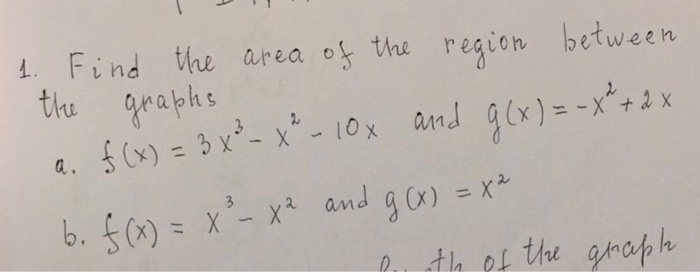 1. Find the area of the region between
the graphs
a. f(x) = 3x³ - x² - 10x and g(x) = -x² + 2x
b. f(x) = x³ - x² and g(x) = x²
of the graph